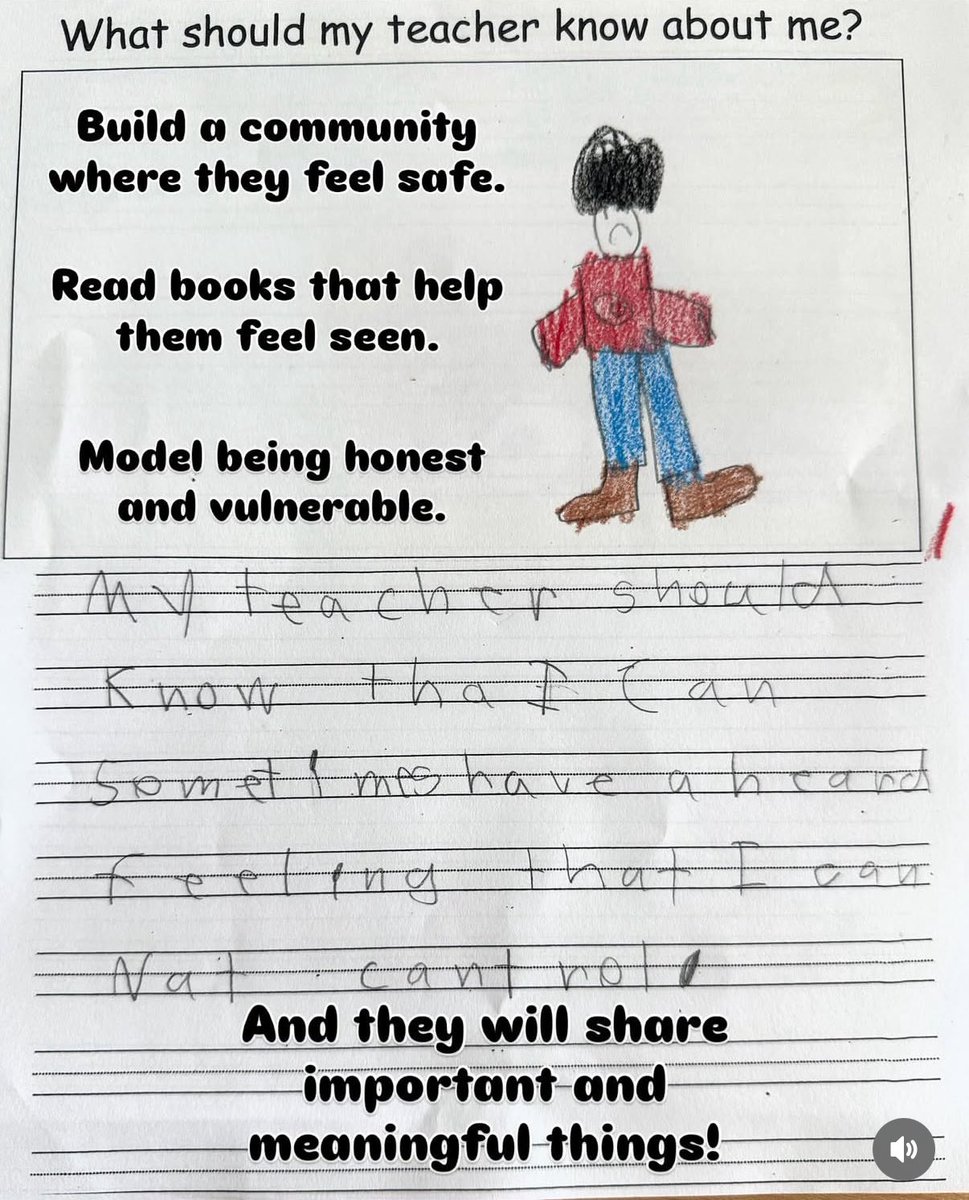 What should my teacher know about me?
Build a community
where they feel safe.
Read books that help
them feel seen.
Model being honest
and vulnerable.
My teacher should
Know tha I Can
Sometimes have a heard
feeling that I can
Nat cantrol
And they will share
important and
meaningful things!